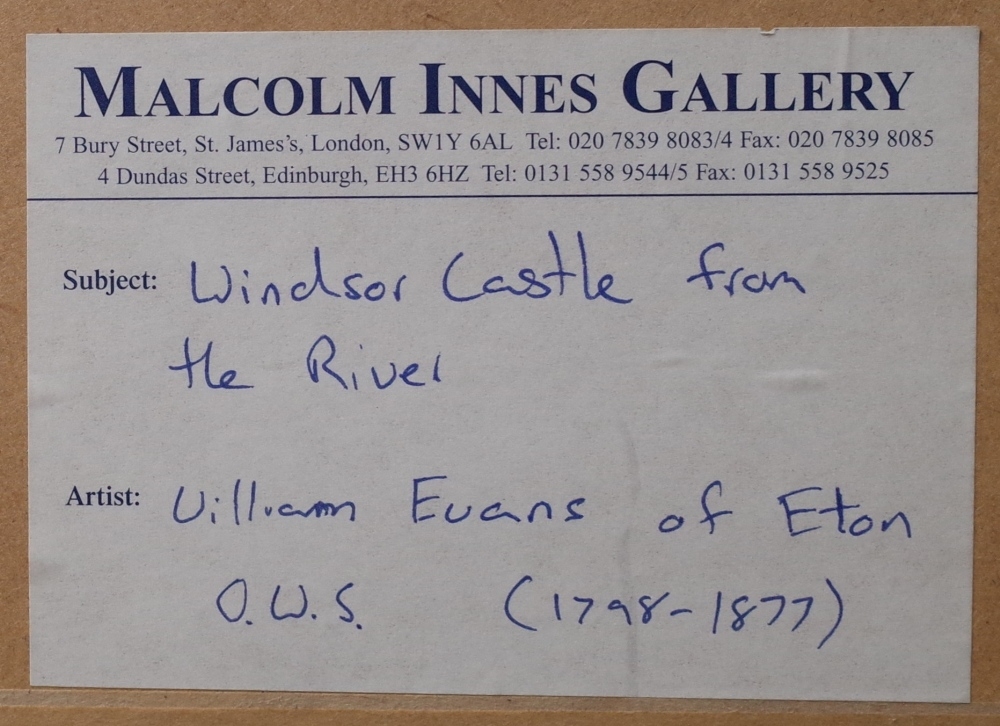 MALCOLM INNES GALLERY
7 Bury Street, St. James's, London, SW1Y 6AL Tel: 020 7839 8083/4 Fax: 020 7839 8085
4 Dundas Street, Edinburgh, EH3 6HZ Tel: 0131 558 9544/5 Fax: 0131 558 9525
Subject: Windsor Castle from
the River
Artist: William Evans of Eton
O.W.S. (1798-1877)